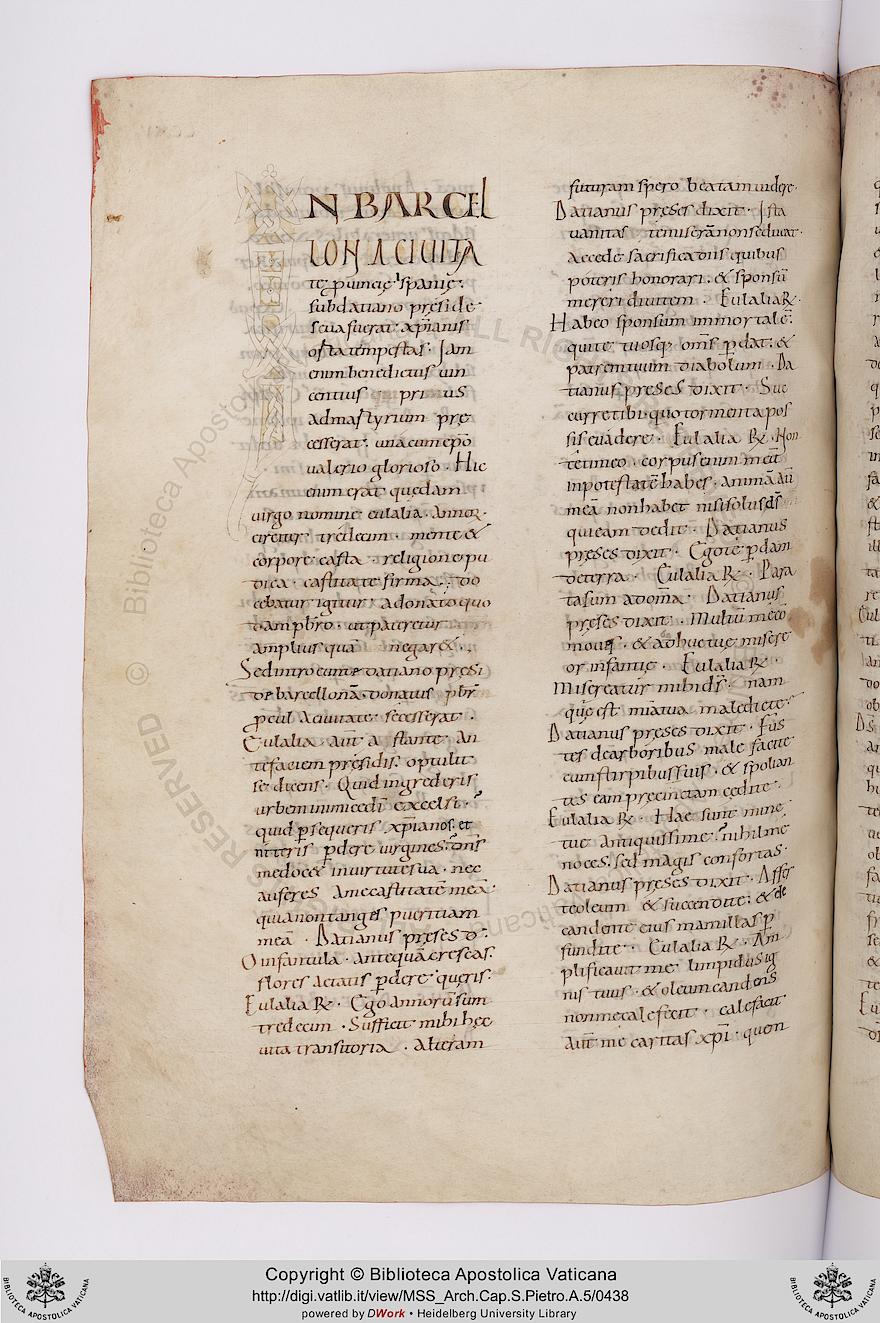 IN BARCEL
LONA CIVITA
te ꝓuincię ispanię.
sub datiano preside
seua fuerat xp̄ianis
osta tempestas. Jam
enim benedictus uin
centius primus
ad martyrium pre
cesserat. una cum ep̄o
ualerio glorioso. Hic
enim erat quedam
uirgo nomine eulalia. Annor.
circiter tredecim. mente &
corpore casta. religione pu
dica. castitate firma. do
cebatur igitur a donato quo
dam pbr̄o. ut pateretur
amplius quā negar&.
Sed introeunte datiano presi
de barcellonā. donatus pbr̄
ꝓcul a ciuitate secesserat.
Eulalia aūt astante an
te faciem presidis. optulit
se dicens. Quid ingrederis
urbem inimice dī excelsi.
quid ꝑsequeris xp̄ianos. et
niteris ꝑdere uirgines. dn̄s
me doc& in uirtute sua. nec
auferes a me castitatē meā.
quia non tanges pueritiam
meā. Datianus preses d̄.
O infantula. antequā crescas.
flores aetatis ꝑdere queris.
Eulalia R̄. Ego annorū sum
tredecim. Sufficit mihi hec
uita transitoria. Alteram
futuram spero beatam uidere.
Datianus preses dixit. Ista
uanitas te miserā non seducat.
Accede sacrifica diis quibus
poteris honorari. & sponsū
mereri diuitem. Eulalia R̄.
Habeo sponsum inmortalē.
qui te tuosq; om̄s ꝑdat. &
patrem tuum diabolum. Da
tianus preses dixit. Suc
curre tibi. quo tormenta pos
sis euadere. Eulalia R̄. Non
te timeo. corpus enim meū
in potestatē habes. animā aūt
meā non habet nisi solus ds̄
qui eam dedit. Datianus
preses dixit. Ego te ꝑdam
de terra. Eulalia R̄. Para
ta sum ad omā. Datianus
preses dixit. Multū me co
moues. & adhuc tuę misere
or infantię. Eulalia R̄.
Misereatur mihi ds̄. nam
quę est mīa tua maledicte.
Datianus preses dixit. Fus
tes de arboribus male facite
cum stirpibus suis. & spolian
tes eam precinctam cedite.
Eulalia R̄. Hae sunt minę
tuę antiquissime. nihil me
noces. sed magis confortas.
Datianus preses dixit. Affer
te oleum & succendite. & de
candente eius mamillas ꝑ
fundite. Eulalia R̄. Am
plificauit me limpidus ig
nis tuus. & oleum candens
non me calefecit. calefacit
aūt me caritas xp̄i. quon
RESERVED © Biblioteca Apostolica Vaticana ALL RIGHTS
Copyright © Biblioteca Apostolica Vaticana
http://digi.vatlib.it/view/MSS_Arch.Cap.S.Pietro.A.5/0438
powered by DWork • Heidelberg University Library
BIBLIOTHECA APOSTOLICA VATICANA
BIBLIOTHECA APOSTOLICA VATICANA